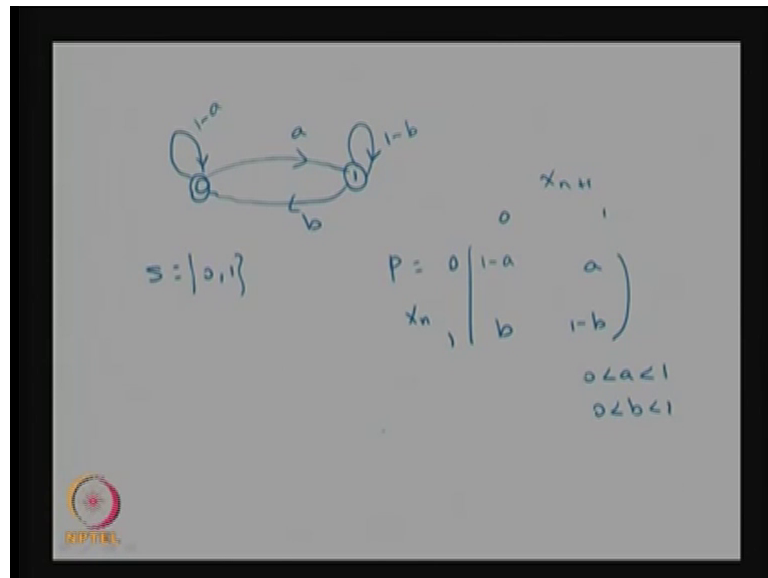 1-a
a
1-b
0
1
b
x_{n+1}
0 1
S = {0, 1}
P = 0 | 1-a a )
x_n 1 | b 1-b )
0<a<1
0<b<1
NPTEL